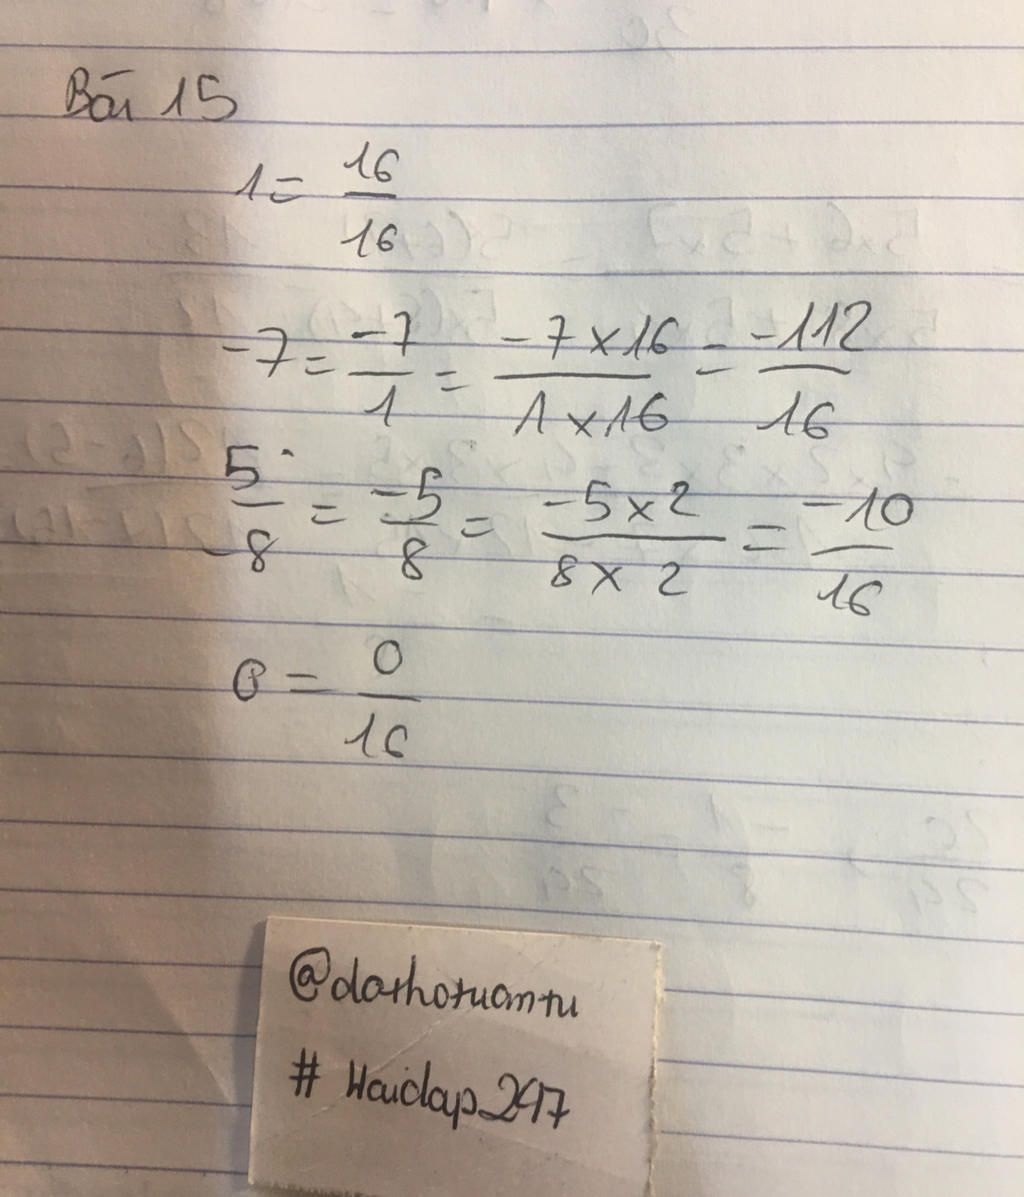 Bài 15
1 = 16/16
-7 = -7/1 = -7 x 16/1 x 16 = -112/16
5/-8 = -5/8 = -5 x 2/8 x 2 = -10/16
0 = 0/16
@dorhotuantu
# Hoidap247